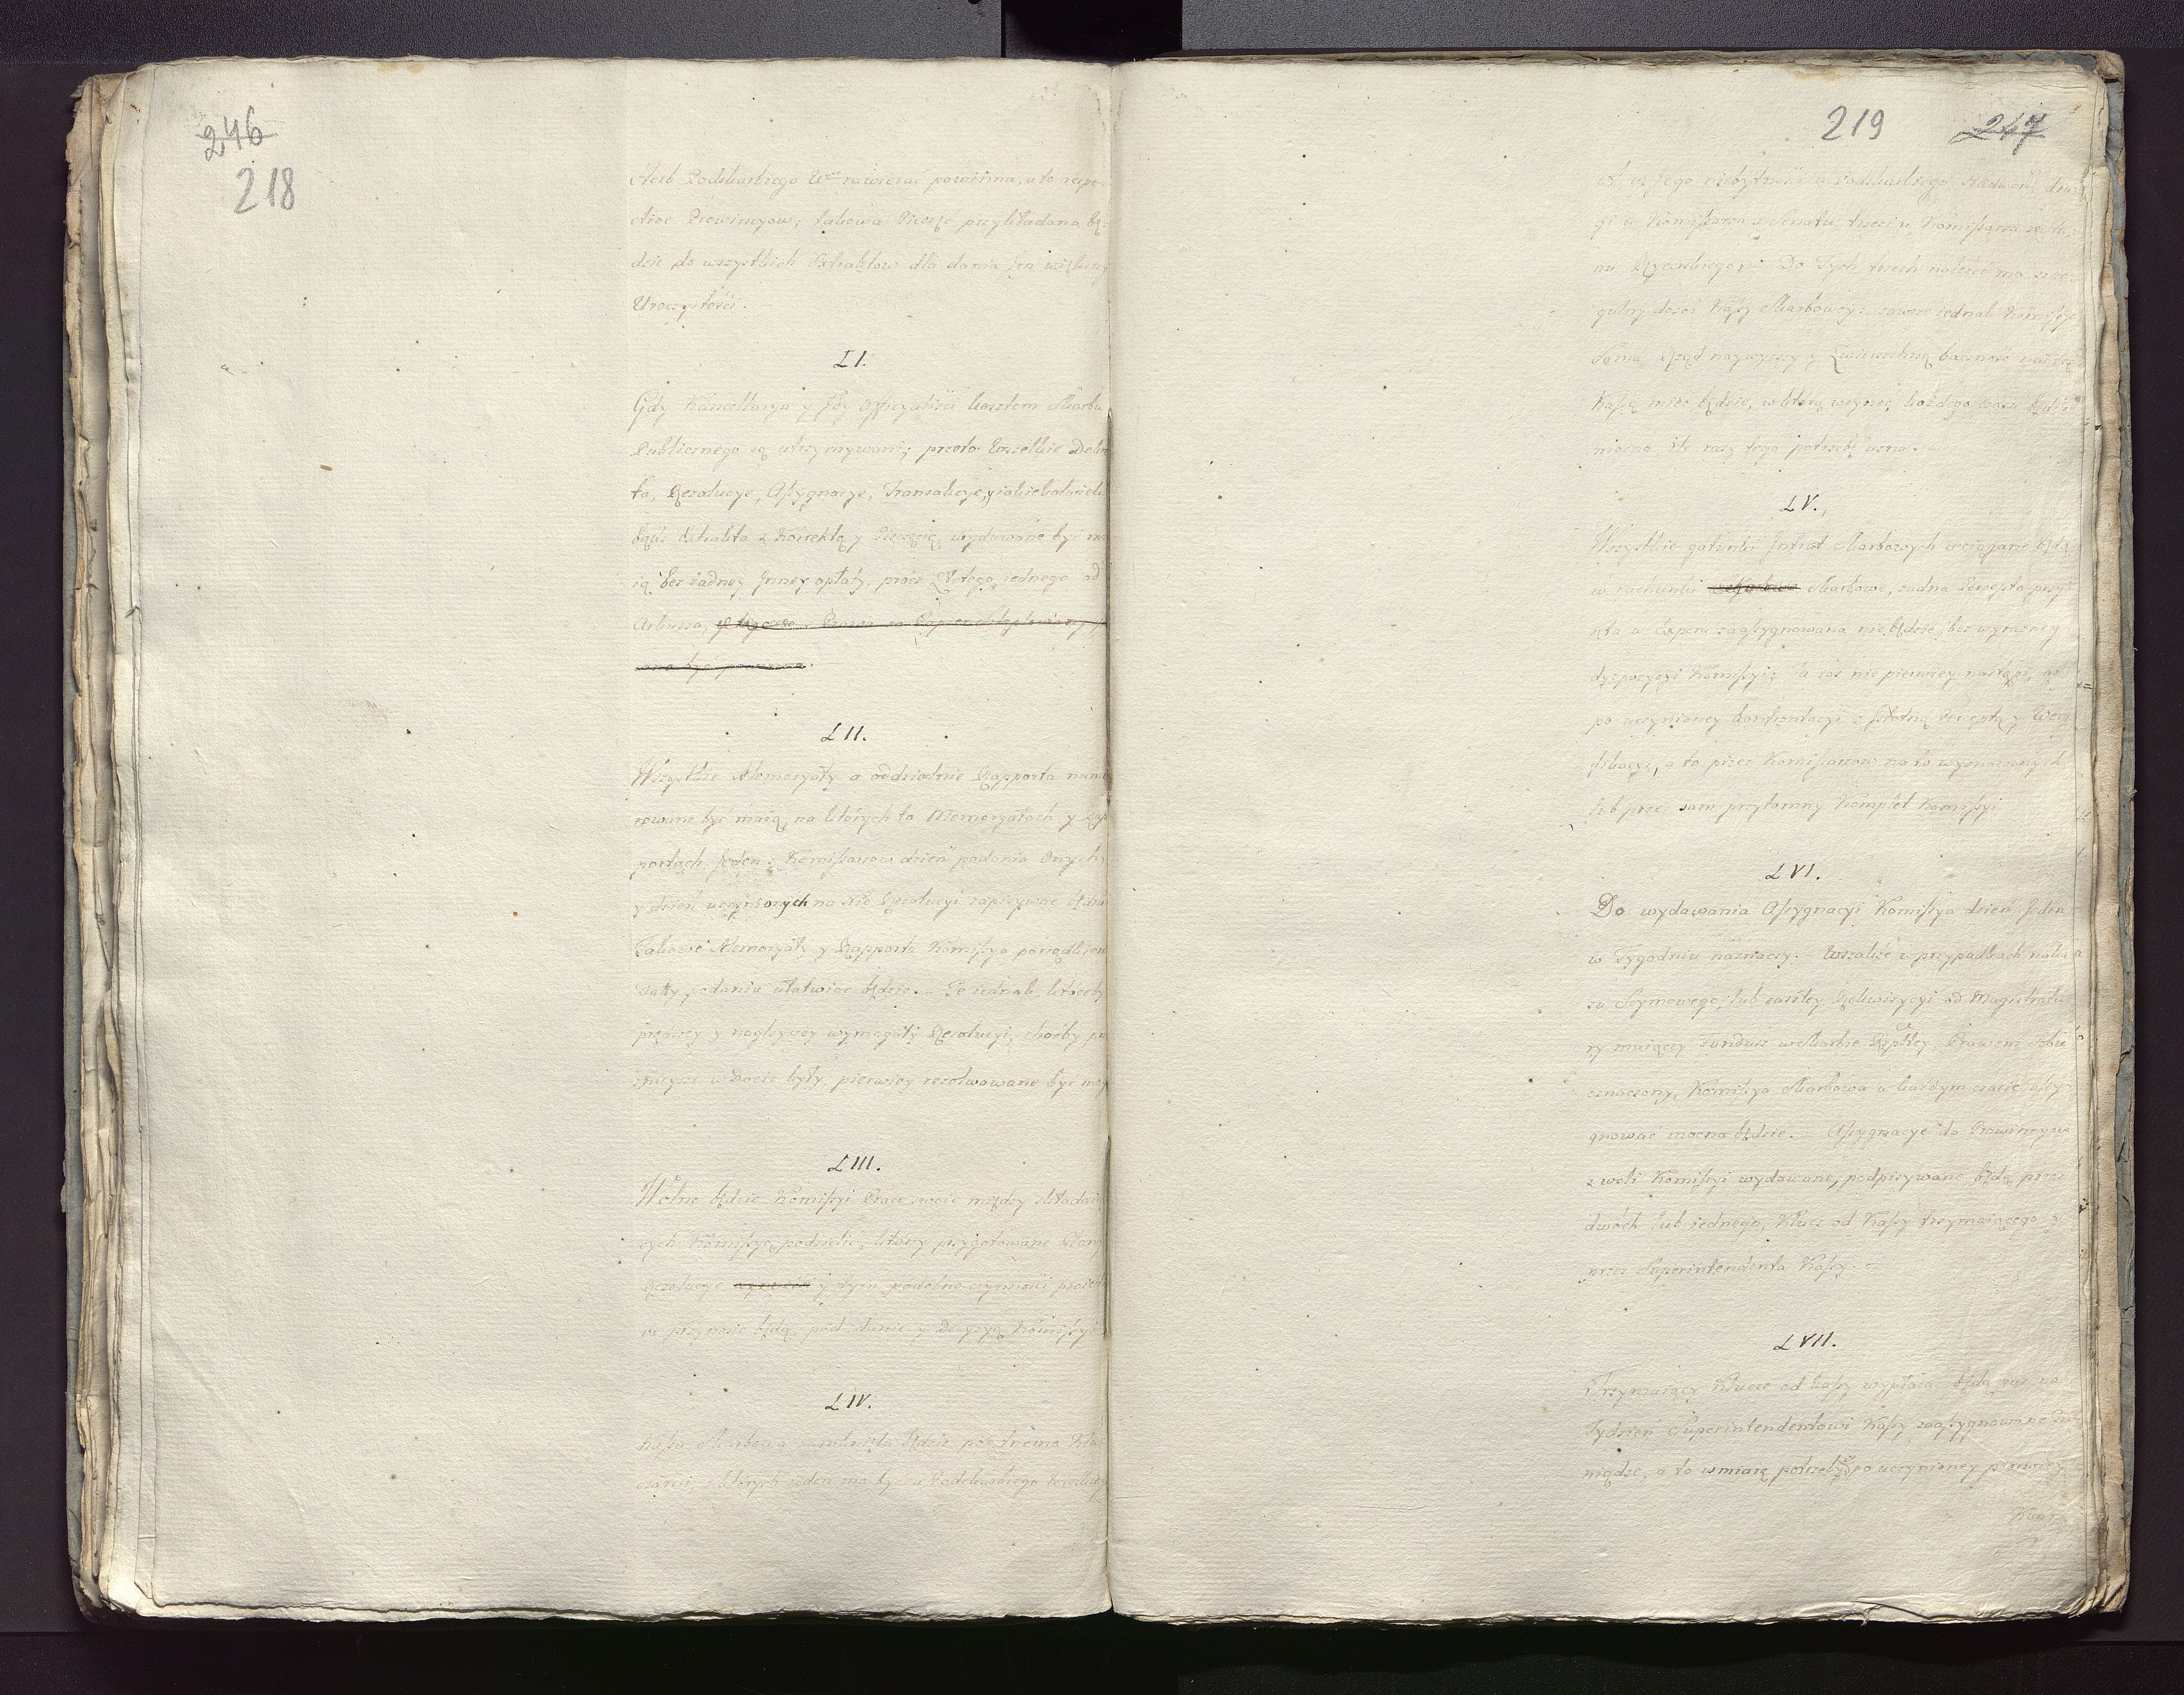 246
218
Herb Podskarbiego Wgo zawierać powinna, a to respe-
ctive Prowincyow; takowa Pieczęć przykładana bę-
dzie do wszystkich Extraktow dla dania Im większey
Uroczystości.
LI.
Gdy Kancellarya y Jey Officyaliści kosztem Skarbu
Publicznego są utrzymywani; przeto wszelkie Dekre
ta, Rezolucye, Assygnacye, Transakcye, y iakiekolwiek
bądź Extrakta z Korrektą y Pieczęcią wydawane być ma
ią bez żadney Inney opłaty, procz Złotego iednego od
Arkusza,
LII.
Wszystkie Memoryały a oddzielnie Rapporta nume
rowane być maią, na których to Memoryałach y Rap
portach, Jeden z Kommissarzow dzień podania Onych,
y dzień uczynionych na nie Rezolucyi zapisywać będzie
Takowe Memoryały y Rapporta Kommissya porządkiem
datty podania ułatwiać będzie. Te iednak, któreby
prędszey y nagleyszey wymagały Rezolucyi, choćby po
źnieysze w Dacie były, pierwiey rezolwowane być mogą
LIII.
Wolno będzie Kommissyi Prace swoie między składaią
cych Kommissyą podzielić, którzy przygotowane Plany
Rezolucye y tym podobne czynności
przynosić będą pod zdanie y Decyzyą Kommissyi
LIV.
Kassa Skarbowa zamknięta będzie pod trzema Klu
czami, z których ieden ma być u Podskarbiego Wielkiego
219 247
a w Jego niebytności u Podskarbiego Nadwor: dru
gi u Kommissarza z Senatu, trzeci u Kommissarza ze Sta
nu Rycerskiego. Do Tych trzech należeć ma szcze
gulny dozor Kassy Skarbowey: zawsze iednak Kommissya
Sama Rząd naywyższy y Zwierzchnią baczność nad tą
Kassą mieć będzie, w którą weyrzeć, każdego czasu będzie
mocna ile razy tego potrzebę uzna.
LV.
Wszystkie gatunki Intrat Skarbowych wciągane będą
w rachunki Skarbowe, żadna Percepta przy
ięta a Expens zaassygnowana nie będzie, bez wyraźney
dyspozycyi Kommissyi; Ta zaś nie pierwiey nastąpi, aż
po uczynioney konfrontacyi z Istotną Perceptą y Wery
fikacyi, a to przez Kommissarzow na to wyznaczonych
lub przez sam przytomny Komplet Kommissyi
LVI.
Do wydawania Assygnacyi Kommissya dzień Jeden
w Tygodniu naznaczy. Wszakże w przypadkach naka
zu Seymowego, lub zaszłey Rekwizycyi od Magistratu
ry maiącey Fundusz w Skarbie Rzpltey, Prawem Sobie
oznaczony, Kommissya Skarbowa w każdym czasie assy
gnować mocna będzie. Assygnacye do Prowincyow
z woli Kommissyi wydawane, podpisywane będą przez
dwóch lub iednego, Klucz od Kassy trzymaiącego, y
przez Superintendenta Kassy.
LVII.
Trzymaiący Klucze od kassy wypłacać będą raz na
Tydzień Superintendentowi Kassy zaassygnowane Pie
niądze, a to w miarę potrzeby, po uczynioney pierwiey